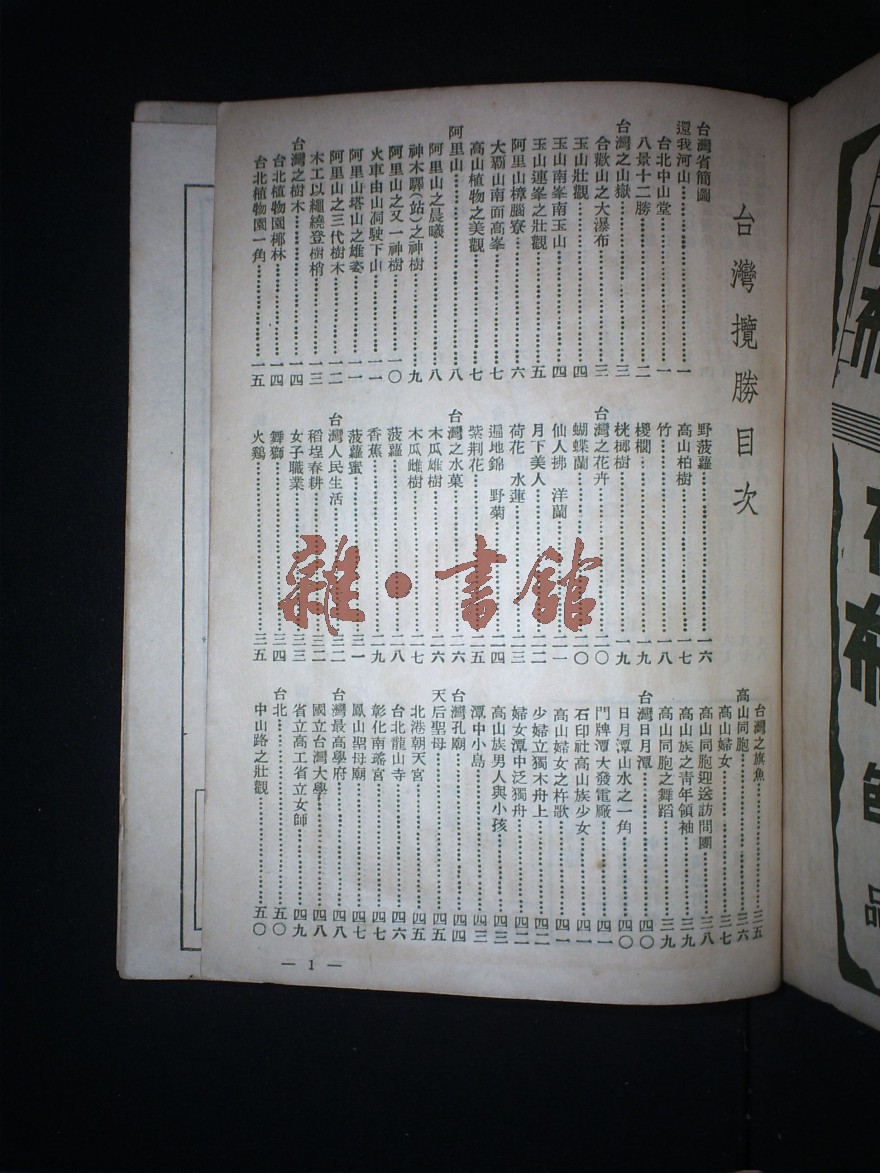 台灣攬勝目次
台灣省簡圖
還我河山……一
台北中山堂……一
八景十二勝……二
台灣之山嶽……三
合歡山之大瀑布……三
玉山壯觀……四
玉山南峯南玉山……四
玉山連峯之壯觀……五
阿里山樟腦寮……六
大霸山南面高峯……七
高山植物之美觀……七
阿里山……八
阿里山之晨曦……八
神木驛(站)之神樹……九
阿里山之又一神樹……一〇
火車由山洞駛下山……一一
阿里山塔山之雄姿……一一
阿里山之三代樹木……一二
木工以繩繞登樹梢……一三
台灣之樹木……一四
台北植物園椰林……一四
台北植物園一角……一五
野菠蘿……一六
高山柏樹……一七
竹……一八
椶櫚……一九
桄榔樹……一九
台灣之花卉……二〇
蝴蝶蘭……二〇
仙人拂 洋蘭……二一
月下美人……二二
荷花 水蓮……二三
遍地錦 野菊……二四
紫荆花……二五
台灣之水菓……二六
木瓜雄樹……二六
木瓜雌樹……二七
菠蘿……二八
香蕉……二九
菠蘿蜜……三一
台灣人民生活……三二
稻埕春耕……三二
女子職業……三三
舞獅……三四
火鷄……三五
台灣之旗魚……三五
高山同胞……三六
高山婦女……三七
高山同胞迎送訪問團……三八
高山族之青年領袖……三九
高山同胞之舞蹈……三九
台灣日月潭……四〇
日月潭山水之一角……四〇
門牌潭大發電廠……四一
石印社高山族少女……四一
高山婦女之杵歌……四一
少婦立獨木舟上……四二
婦女潭中泛獨舟……四二
高山族男人與小孩……四三
潭中小島……四三
台灣孔廟……四四
天后聖母……四五
北港朝天宮……四五
台北龍山寺……四六
彰化南瑤宮……四七
鳳山聖母廟……四七
台灣最高學府……四八
國立台灣大學……四八
省立高工省立女師……四九
台北……五〇
中山路之壯觀……五〇
— 1 —
雜·書館
布
布
色
品